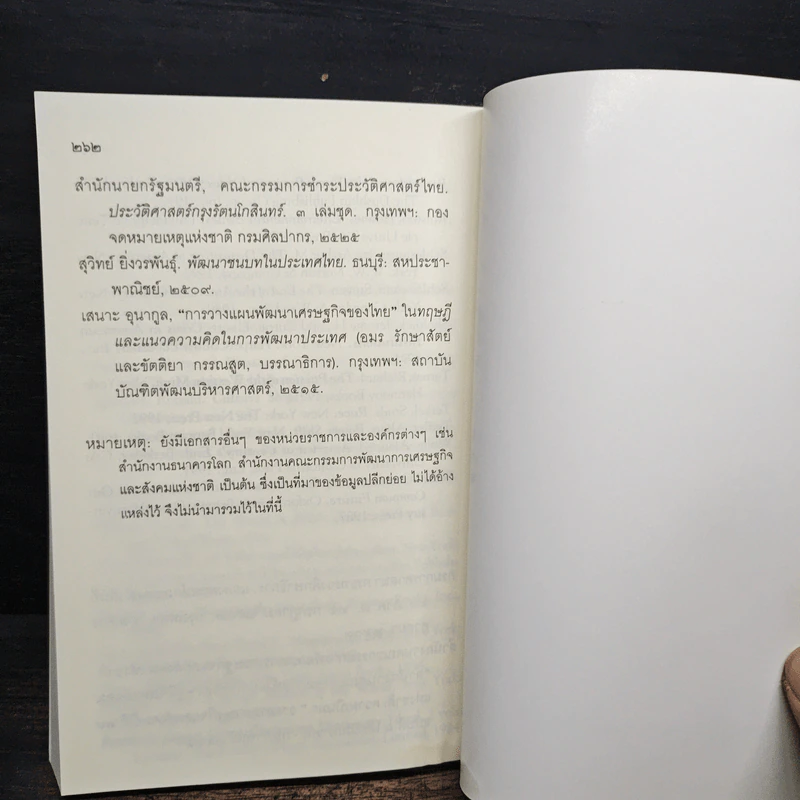 ๒๖๒
สำนักนายกรัฐมนตรี, คณะกรรมการชำระประวัติศาสตร์ไทย.
ประวัติศาสตร์กรุงรัตนโกสินทร์. ๓ เล่มชุด. กรุงเทพฯ: กอง
จดหมายเหตุแห่งชาติ กรมศิลปากร, ๒๕๒๕
สุวิทย์ ยิ่งวรพันธุ์. พัฒนาชนบทในประเทศไทย. ธนบุรี: สหประชา-
พาณิชย์, ๒๕๐๙.
เสนาะ อุนากูล, “การวางแผนพัฒนาเศรษฐกิจของไทย” ในทฤษฎี
และแนวความคิดในการพัฒนาประเทศ (อมร รักษาสัตย์
และขัตติยา กรรณสูต, บรรณาธิการ). กรุงเทพฯ: สถาบัน
บัณฑิตพัฒนบริหารศาสตร์, ๒๕๑๕.
หมายเหตุ: ยังมีเอกสารอื่นๆ ของหน่วยราชการและองค์กรต่างๆ เช่น
สำนักงานธนาคารโลก สำนักงานคณะกรรมการพัฒนาการเศรษฐกิจ
และสังคมแห่งชาติ เป็นต้น ซึ่งเป็นที่มาของข้อมูลปลีกย่อย ไม่ได้อ้าง
แหล่งไว้ จึงไม่นำมารวมไว้ในที่นี้